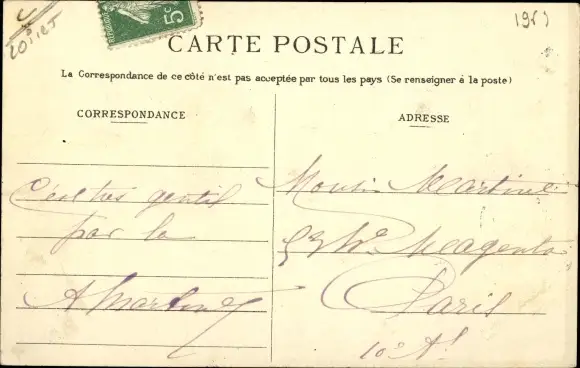 5c
CARTE POSTALE
La Correspondance de ce côté n'est pas acceptée par tous les pays (Se renseigner à la poste)
CORRESPONDANCE
C'est très gentil
par la
A Martin
ADRESSE
Martinet
53 Magenta
Paris
10e Art